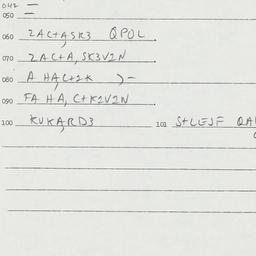 042 —
050 —
060 2AC+A,SK3 QPOL
070 2AC+A,SK3V2N
080 A HAC+2K )-
090 FA HA, C+K2V2N
100 KUKA,RD3 101 S+LEJF QA